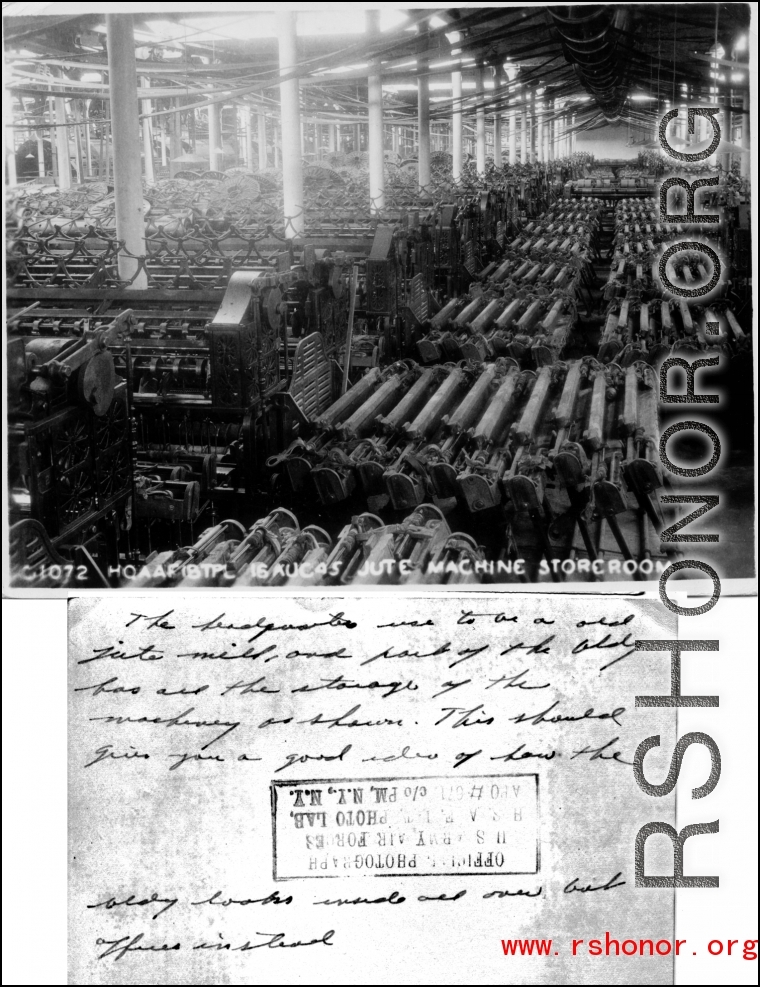 C1072 HQAAFIBTPL 16AUG45 JUTE MACHINE STOREROOM
The headquarters use to be a old
jute mill, and part of the bldg
has all the storage of the
machinery as shown. This should
give you a good idea of how the
OFFICIAL PHOTOGRAPH
U S ARMY AIR FORCES
PHOTO LAB,
c/o PM, N.Y., N.Y.
bldg looks inside all over, but
offices instead
RSHONOR.ORG
www.rshonor.org